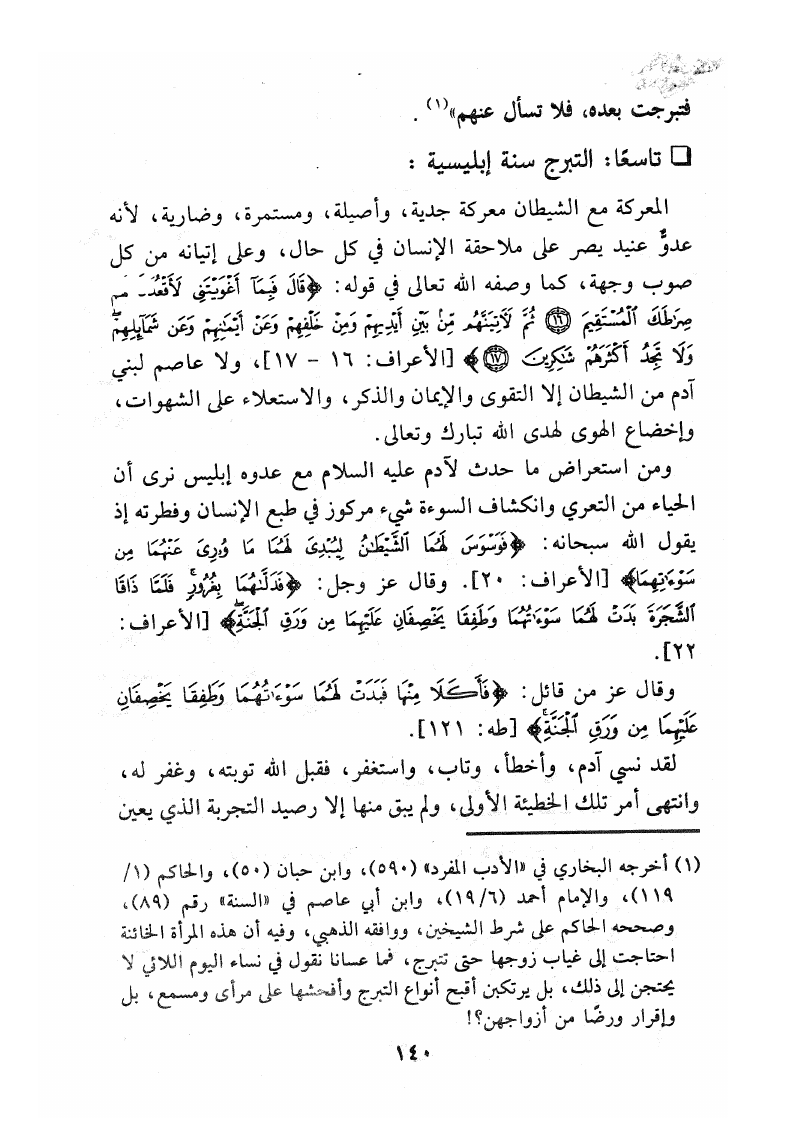 فتبرجت بعده، فلا تسأل عنهم»(١) .
❑ تاسعًا: التبرج سنة إبليسية :
المعركة مع الشيطان معركة جدية، وأصيلة، ومستمرة، وضارية، لأنه
عدوٌّ عنيد يصر على ملاحقة الإنسان في كل حال، وعلى إتيانه من كل
صوب وجهة، كما وصفه الله تعالى في قوله: ﴿قَالَ فَبِمَآ أَغْوَيْتَنِى لَأَقْعُدَنَّ لَهُمْ
صِرَٰطَكَ ٱلْمُسْتَقِيمَ ١٦ ثُمَّ لَأَتِيَنَّهُم مِّنۢ بَيْنِ أَيْدِيهِمْ وَمِنْ خَلْفِهِمْ وَعَنْ أَيْمَٰنِهِمْ وَعَن شَمَآئِلِهِمْ
وَلَا تَجِدُ أَكْثَرَهُمْ شَٰكِرِينَ ١٧﴾ [الأعراف: ١٦ – ١٧]، ولا عاصم لبني
آدم من الشيطان إلا التقوى والإيمان والذكر، والاستعلاء على الشهوات،
وإخضاع الهوى لهدى الله تبارك وتعالى.
ومن استعراض ما حدث لآدم عليه السلام مع عدوه إبليس نرى أن
الحياء من التعري وانكشاف السوءة شيء مركوز في طبع الإنسان وفطرته إذ
يقول الله سبحانه: ﴿فَوَسْوَسَ لَهُمَا ٱلشَّيْطَٰنُ لِيُبْدِىَ لَهُمَا مَا وُۥرِىَ عَنْهُمَا مِن
سَوْءَٰتِهِمَا﴾ [الأعراف: ٢٠]. وقال عز وجل: ﴿فَدَلَّىٰهُمَا بِغُرُورٍ فَلَمَّا ذَاقَا
ٱلشَّجَرَةَ بَدَتْ لَهُمَا سَوْءَٰتُهُمَا وَطَفِقَا يَخْصِفَانِ عَلَيْهِمَا مِن وَرَقِ ٱلْجَنَّةِ﴾ [الأعراف:
٢٢].
وقال عز من قائل: ﴿فَأَكَلَا مِنْهَا فَبَدَتْ لَهُمَا سَوْءَٰتُهُمَا وَطَفِقَا يَخْصِفَانِ
عَلَيْهِمَا مِن وَرَقِ ٱلْجَنَّةِ﴾ [طه: ١٢١].
لقد نسي آدم، وأخطأ، وتاب، واستغفر، فقبل الله توبته، وغفر له،
وانتهى أمر تلك الخطيئة الأولى، ولم يبق منها إلا رصيد التجربة الذي يعين
(١) أخرجه البخاري في «الأدب المفرد» (٥٩٠)، وابن حبان (٥٠)، والحاكم (١/
١١٩)، والإمام أحمد (١٩/٦)، وابن أبي عاصم في «السنة» رقم (٨٩)،
وصححه الحاكم على شرط الشيخين، ووافقه الذهبي، وفيه أن هذه المرأة الخائنة
احتاجت إلى غياب زوجها حتى تتبرج، فما عسانا نقول في نساء اليوم اللائي لا
يحتجن إلى ذلك، بل يرتكبن أقبح أنواع التبرج وأفحشها على مرأى ومسمع، بل
وإقرار ورضًا من أزواجهن؟!
١٤٠